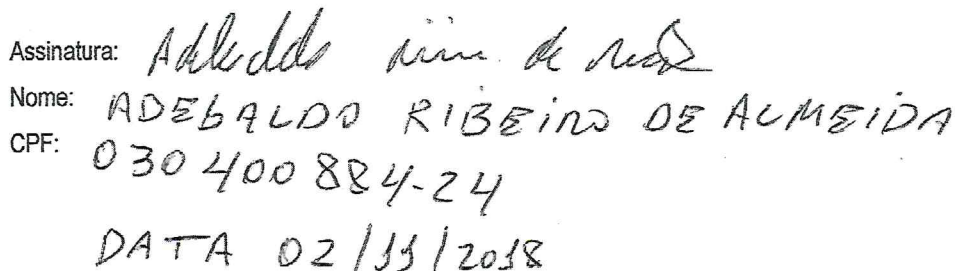 Assinatura:
Nome: ADEBALDO RIBEIRO DE ALMEIDA
CPF: 030400884-24
DATA 02/11/2018